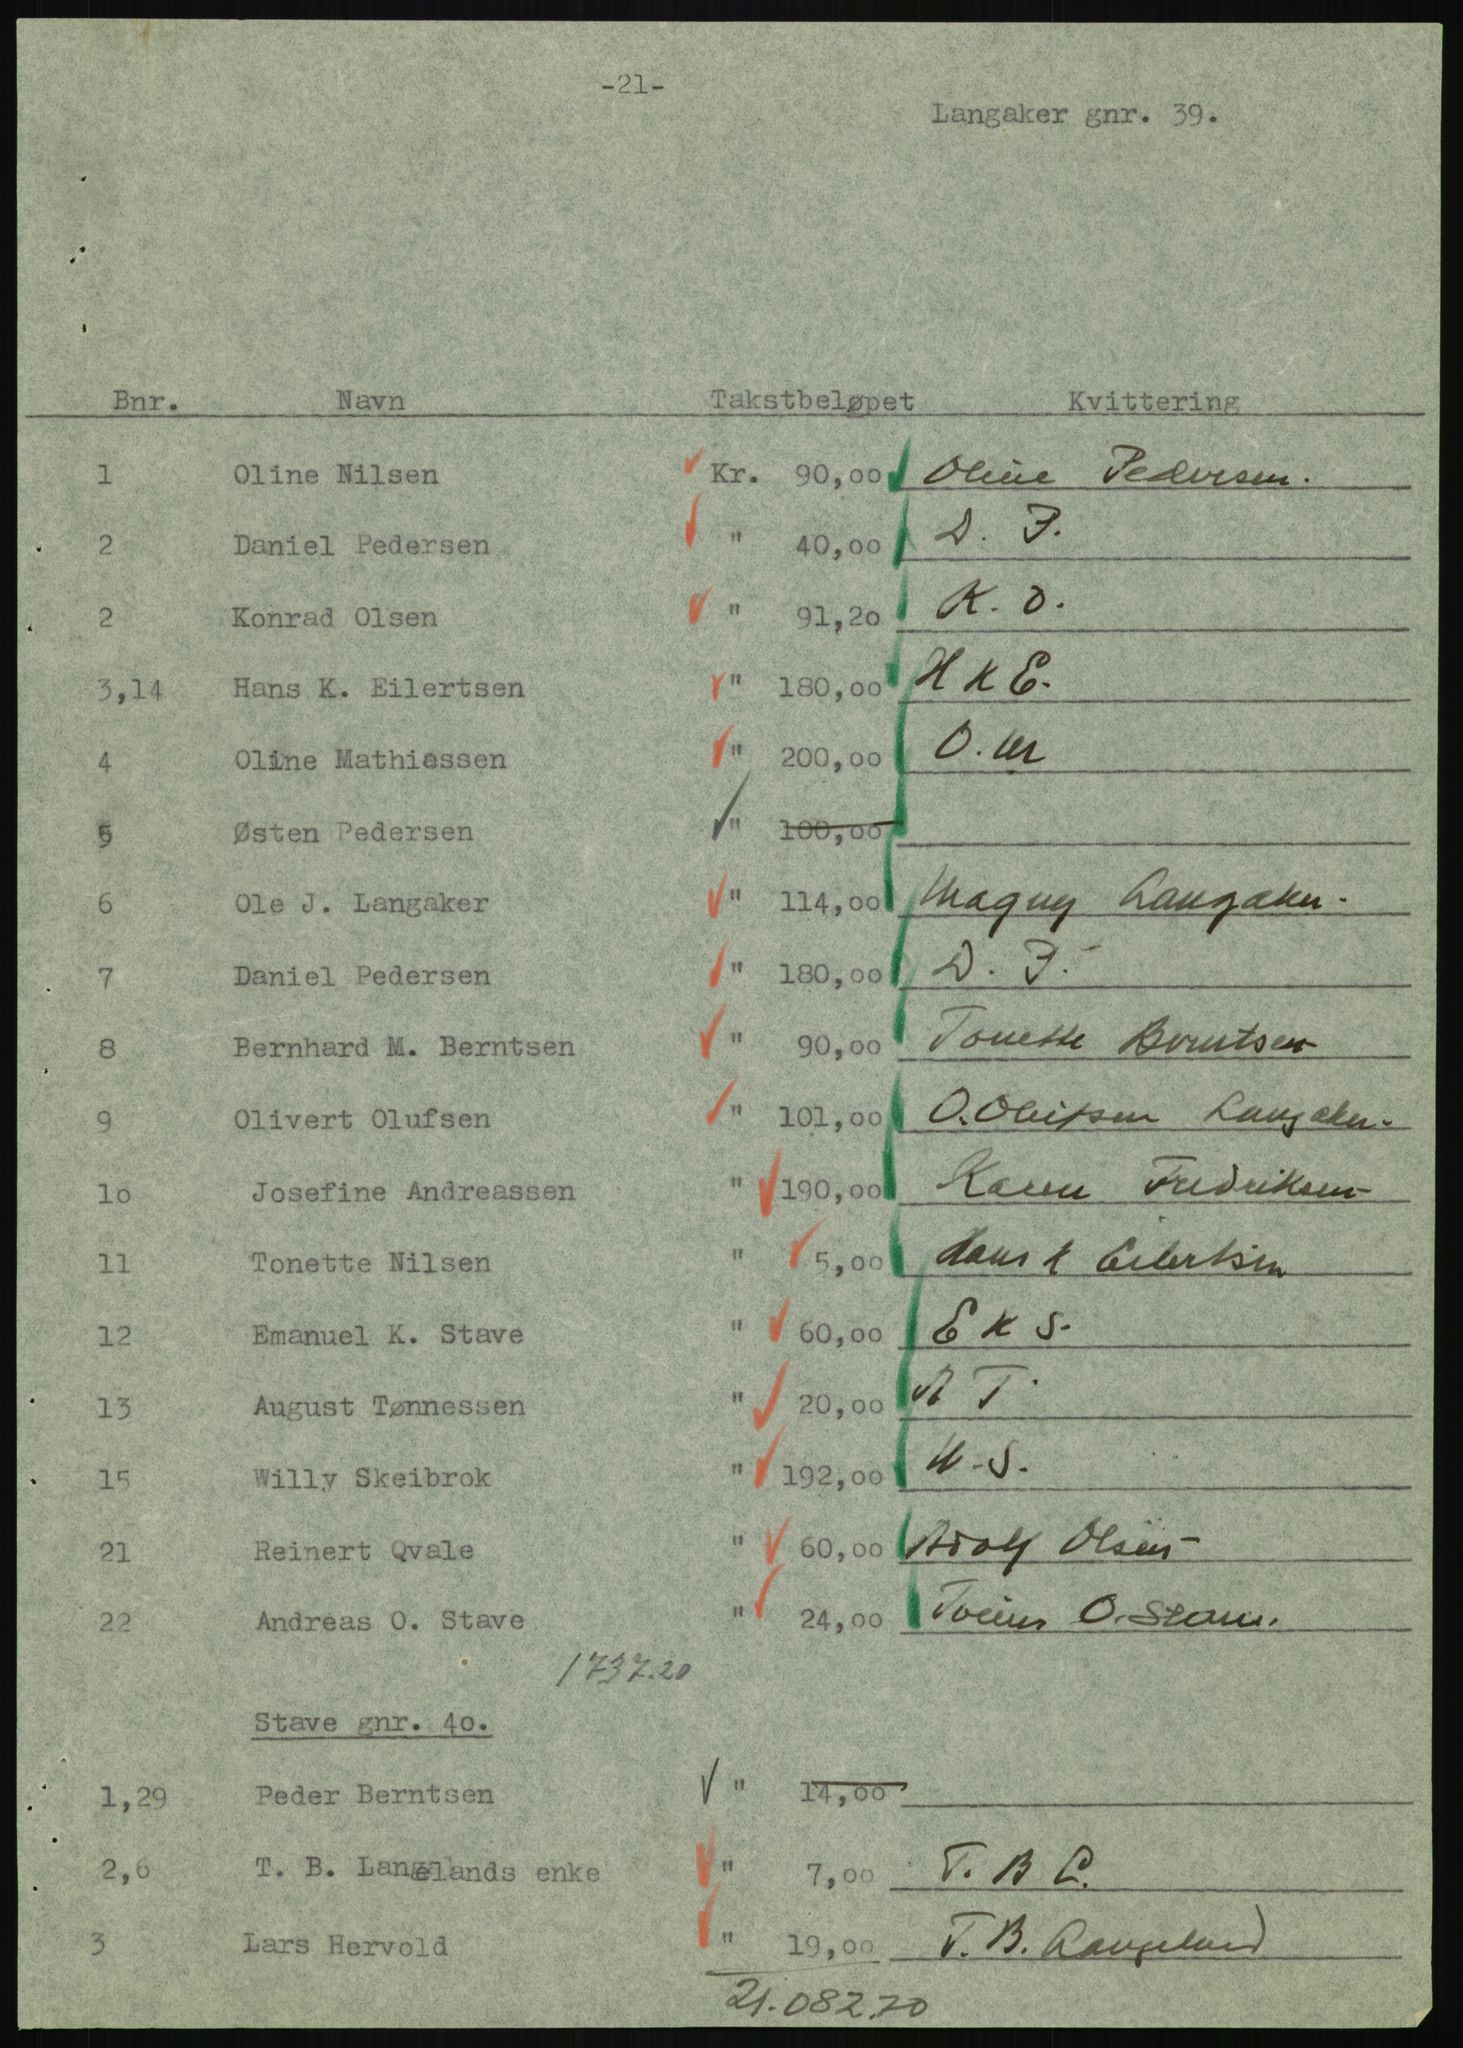 -21-
Langaker gnr. 39.
Bnr. Navn Takstbeløpet Kvittering
1 Oline Nilsen Kr. 90,00 Oline Pedersen.
2 Daniel Pedersen " 40,00 D. P.
2 Konrad Olsen " 91,20 K. O.
3,14 Hans K. Eilertsen " 180,00 H K E.
4 Oline Mathiassen " 200,00 O. M
5 Østen Pedersen " 100,00
6 Ole J. Langaker " 114,00 Magny Langaker.
7 Daniel Pedersen " 180,00 D. P.
8 Bernhard M. Berntsen " 90,00 Tonette Berntsen
9 Olivert Olufsen " 101,00 O. Langaker.
10 Josefine Andreassen " 190,00 Karen Fredriksen
11 Tonette Nilsen " 5,00 Hans K Eilertsen
12 Emanuel K. Stave " 60,00 E K S.
13 August Tønnessen " 20,00 A T
15 Willy Skeibrok " 192,00 W. S.
21 Reinert Qvale " 60,00 Adolf Olsen
22 Andreas O. Stave " 24,00 O. Stave.
1737.20
Stave gnr. 40.
1,29 Peder Berntsen " 14,00
2,6 T. B. Langelands enke " 7,00 T. B L.
3 Lars Hervold " 19,00 T. B. Langeland
21.082,70